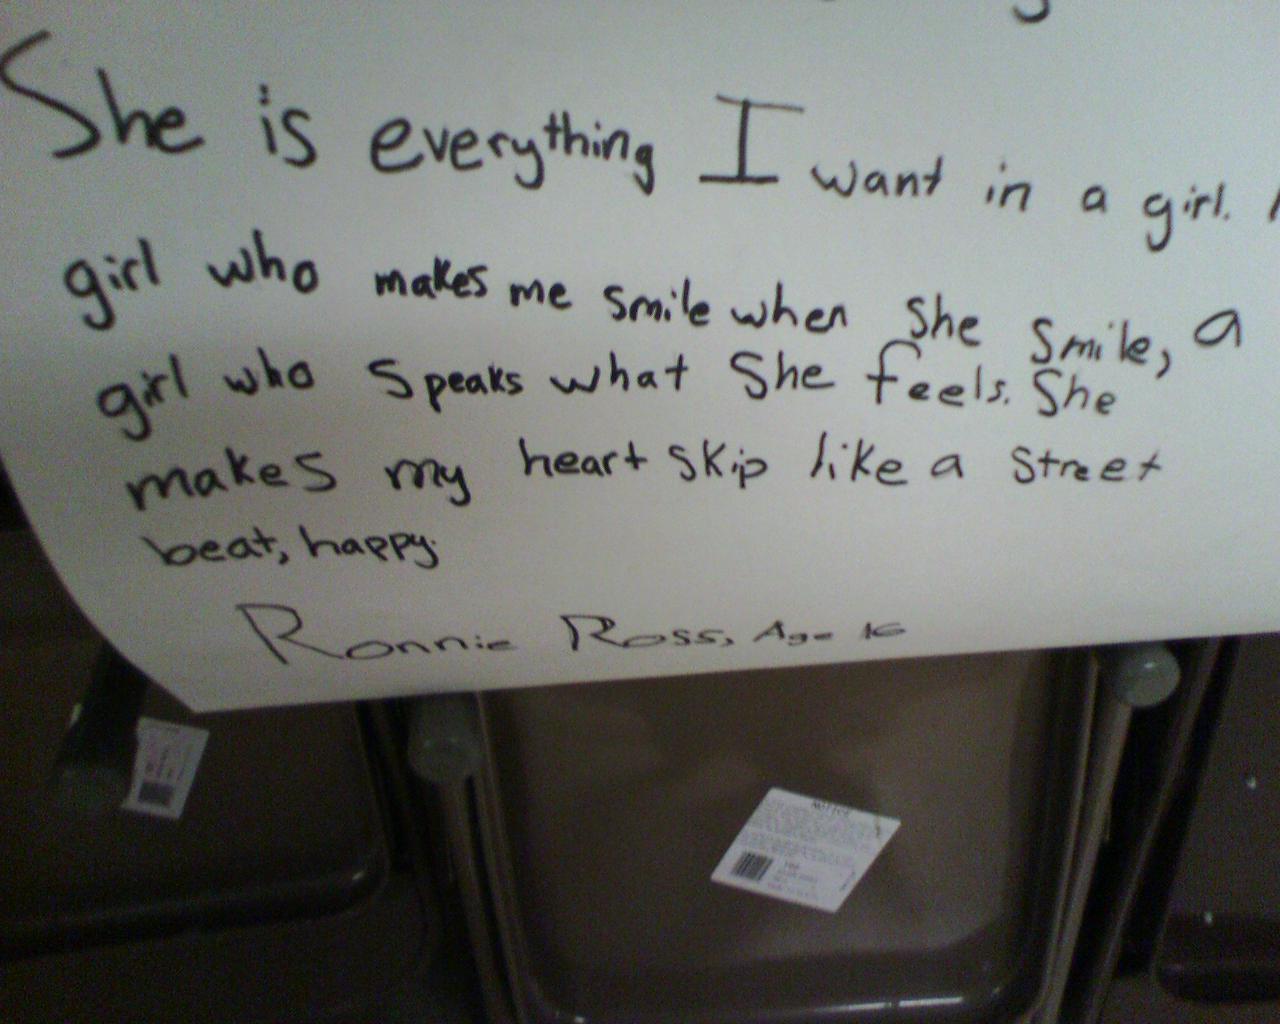 She is everything I want in a girl. A
girl who makes me smile when she smile, a
girl who speaks what she feels. She
makes my heart skip like a street
beat, happy.
Ronnie Ross, Age 16
NOTICE